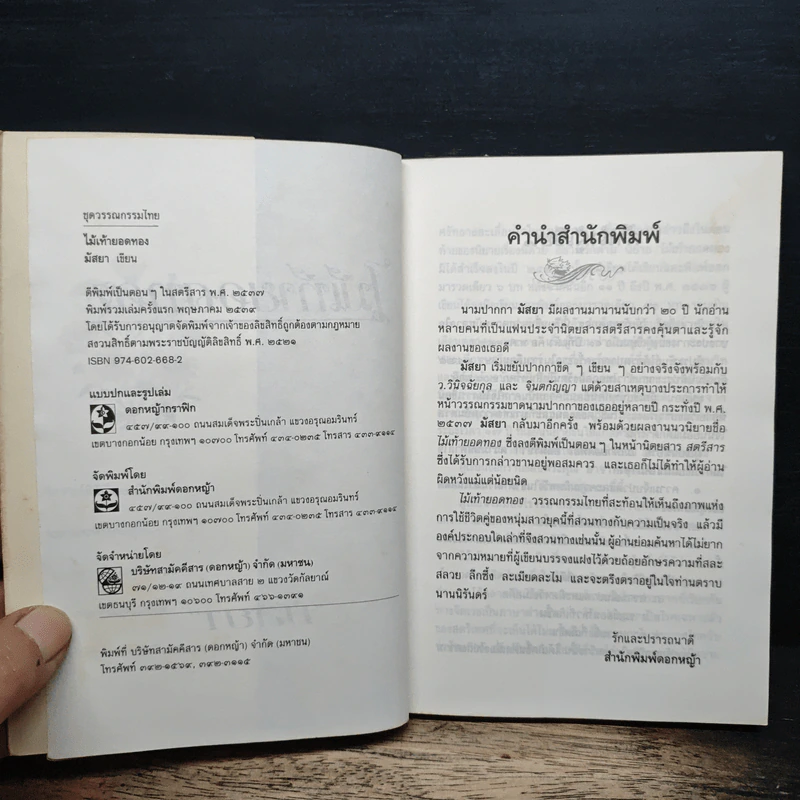 ชุดวรรณกรรมไทย
ไม้เท้ายอดทอง
มัสยา เขียน
ตีพิมพ์เป็นตอน ๆ ในสตรีสาร พ.ศ. ๒๕๓๗
พิมพ์รวมเล่มครั้งแรก พฤษภาคม ๒๕๓๙
โดยได้รับการอนุญาตจัดพิมพ์จากเจ้าของลิขสิทธิ์ถูกต้องตามกฎหมาย
สงวนสิทธิ์ตามพระราชบัญญัติลิขสิทธิ์ พ.ศ. ๒๕๒๑
ISBN 974-602-668-2
แบบปกและรูปเล่ม
ดอกหญ้ากราฟิก
๔๕๗/๙๙-๑๐๐ ถนนสมเด็จพระปิ่นเกล้า แขวงอรุณอมรินทร์
เขตบางกอกน้อย กรุงเทพฯ ๑๐๗๐๐ โทรศัพท์ ๔๓๔-๐๒๓๕ โทรสาร ๔๓๓-๙๑๑๔
จัดพิมพ์โดย
สำนักพิมพ์ดอกหญ้า
๔๕๗/๙๙-๑๐๐ ถนนสมเด็จพระปิ่นเกล้า แขวงอรุณอมรินทร์
เขตบางกอกน้อย กรุงเทพฯ ๑๐๗๐๐ โทรศัพท์ ๔๓๔-๐๒๓๕ โทรสาร ๔๓๓-๙๑๑๔
จัดจำหน่ายโดย
บริษัทสามัคคีสาร (ดอกหญ้า) จำกัด (มหาชน)
๗๑/๑๒-๑๙ ถนนเทศบาลสาย ๒ แขวงวัดกัลยาณ์
เขตธนบุรี กรุงเทพฯ ๑๐๖๐๐ โทรศัพท์ ๔๖๖-๑๓๙๑
พิมพ์ที่ บริษัทสามัคคีสาร (ดอกหญ้า) จำกัด (มหาชน)
โทรศัพท์ ๓๙๒-๑๕๖๙, ๓๙๒-๓๑๑๕
คำนำสำนักพิมพ์
นามปากกา มัสยา มีผลงานมานานนับกว่า ๒๐ ปี นักอ่าน
หลายคนที่เป็นแฟนประจำนิตยสารสตรีสารคงคุ้นตาและรู้จัก
ผลงานของเธอดี
มัสยา เริ่มขยับปากกาขีด ๆ เขียน ๆ อย่างจริงจังพร้อมกับ
ว.วินิจฉัยกุล และ จินตกัญญา แต่ด้วยสาเหตุบางประการทำให้
หน้าวรรณกรรมขาดนามปากกาของเธออยู่หลายปี กระทั่งปี พ.ศ.
๒๕๓๗ มัสยา กลับมาอีกครั้ง พร้อมด้วยผลงานนวนิยายชื่อ
ไม้เท้ายอดทอง ซึ่งลงตีพิมพ์เป็นตอน ๆ ในหน้านิตยสาร สตรีสาร
ซึ่งได้รับการกล่าวขานอยู่พอสมควร และเธอก็ไม่ได้ทำให้ผู้อ่าน
ผิดหวังแม้แต่น้อยนิด
ไม้เท้ายอดทอง วรรณกรรมไทยที่สะท้อนให้เห็นถึงภาพแห่ง
การใช้ชีวิตคู่ของหนุ่มสาวยุคนี้ที่สวนทางกับความเป็นจริง แล้วมี
องค์ประกอบใดเล่าที่จึงสวนทางเช่นนั้น ผู้อ่านย่อมค้นหาได้ไม่ยาก
จากความหมายที่ผู้เขียนบรรจงแฝงไว้ด้วยถ้อยอักษรความที่สละ
สลวย ลึกซึ้ง ละเมียดละไม และจะตรึงตราอยู่ในใจท่านตราบ
นานนิรันดร์
รักและปรารถนาดี
สำนักพิมพ์ดอกหญ้า